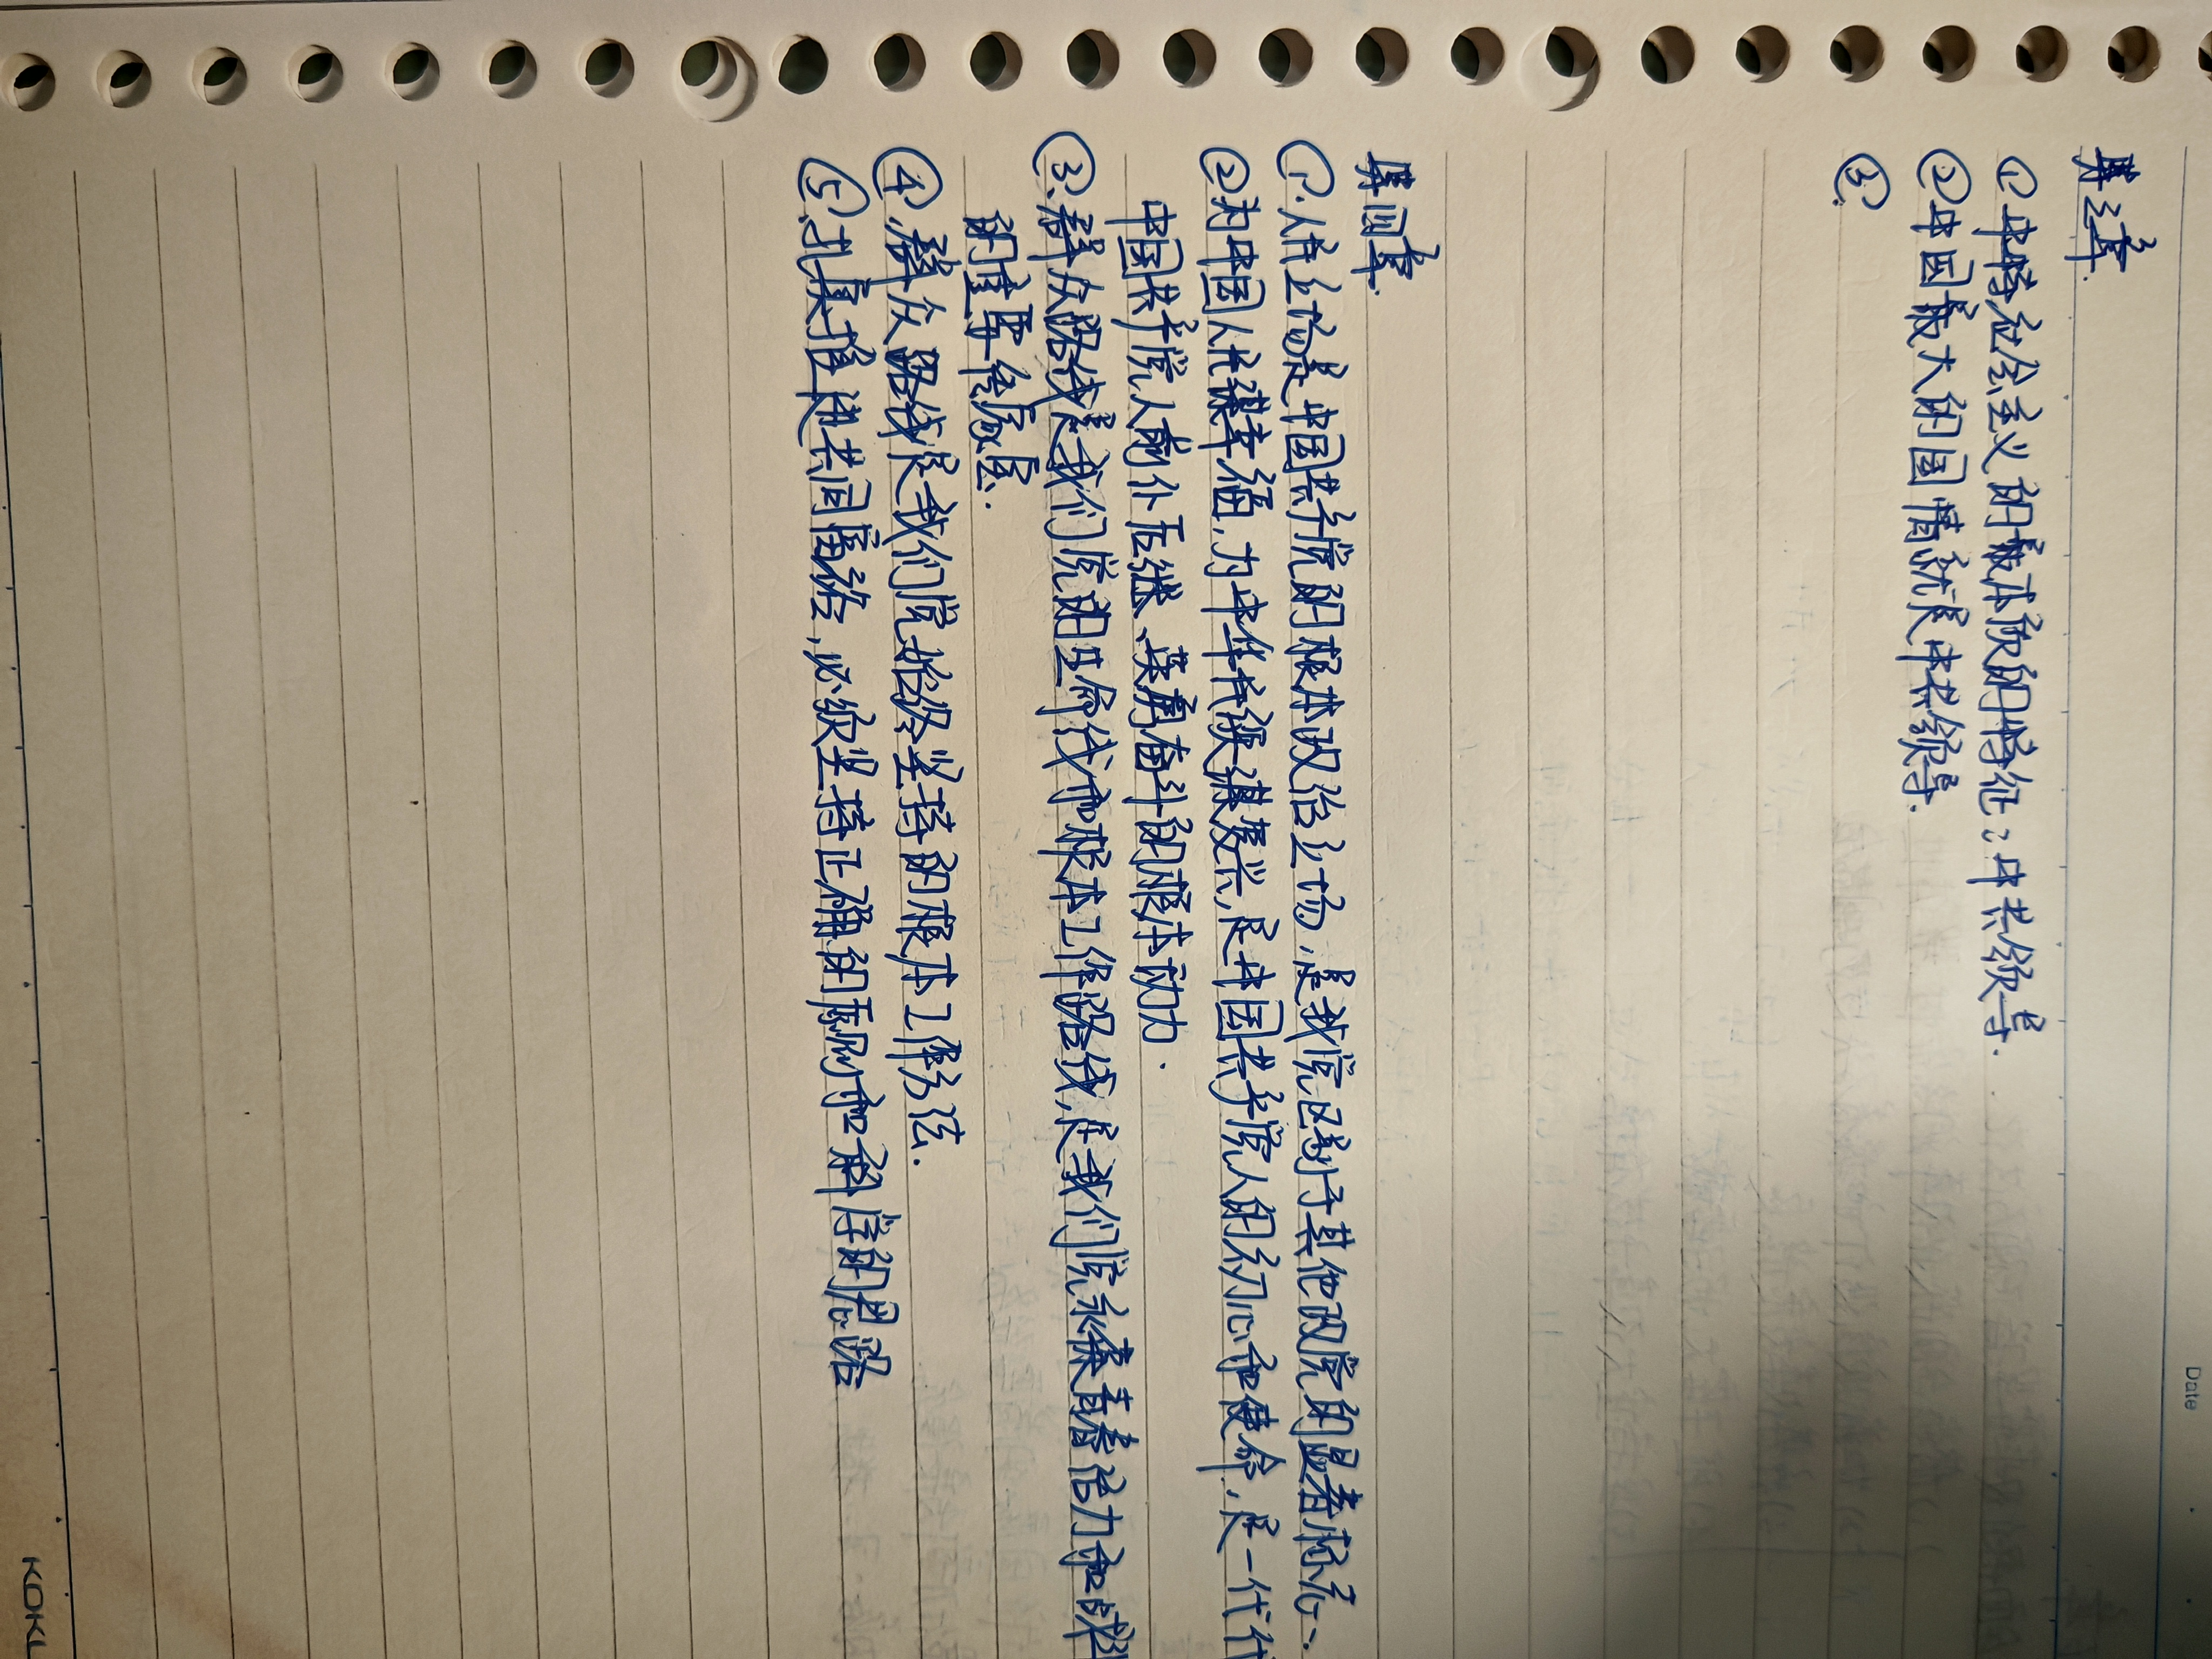 Date
第三章.
①中特社会主义的最本质的特征：中共领导.
②中国最大的国情就是中共领导.
③.
第四章.
①.人民立场是中国共产党的根本政治立场,是我党区别于其他政党的显著标志.
②为中国人民谋幸福,为中华民族谋复兴,是中国共产党人的初心和使命,是一代代
中国共产党人前仆后继、英勇奋斗的根本动力.
③.群众路线是我们党的生命线和根本工作路线,是我们党永葆青春活力和战斗
的重要传家宝.
④.群众路线是我们党始终坚持的根本工作方法.
⑤.扎实推进共同富裕,必须坚持正确的原则和解序的思路
KOKU